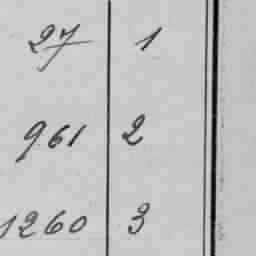 27 1
961 2
1260 3